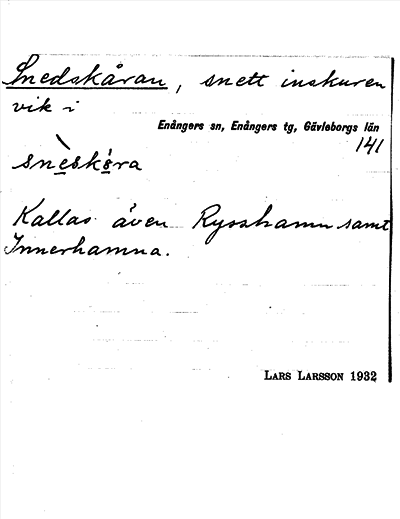 Snedskåran, snett inskuren
vik i
Enångers sn, Enångers tg, Gävleborgs län
141
snèskóra
Kallas även Rysshamn samt
Innerhamna.
LARS LARSSON 1932